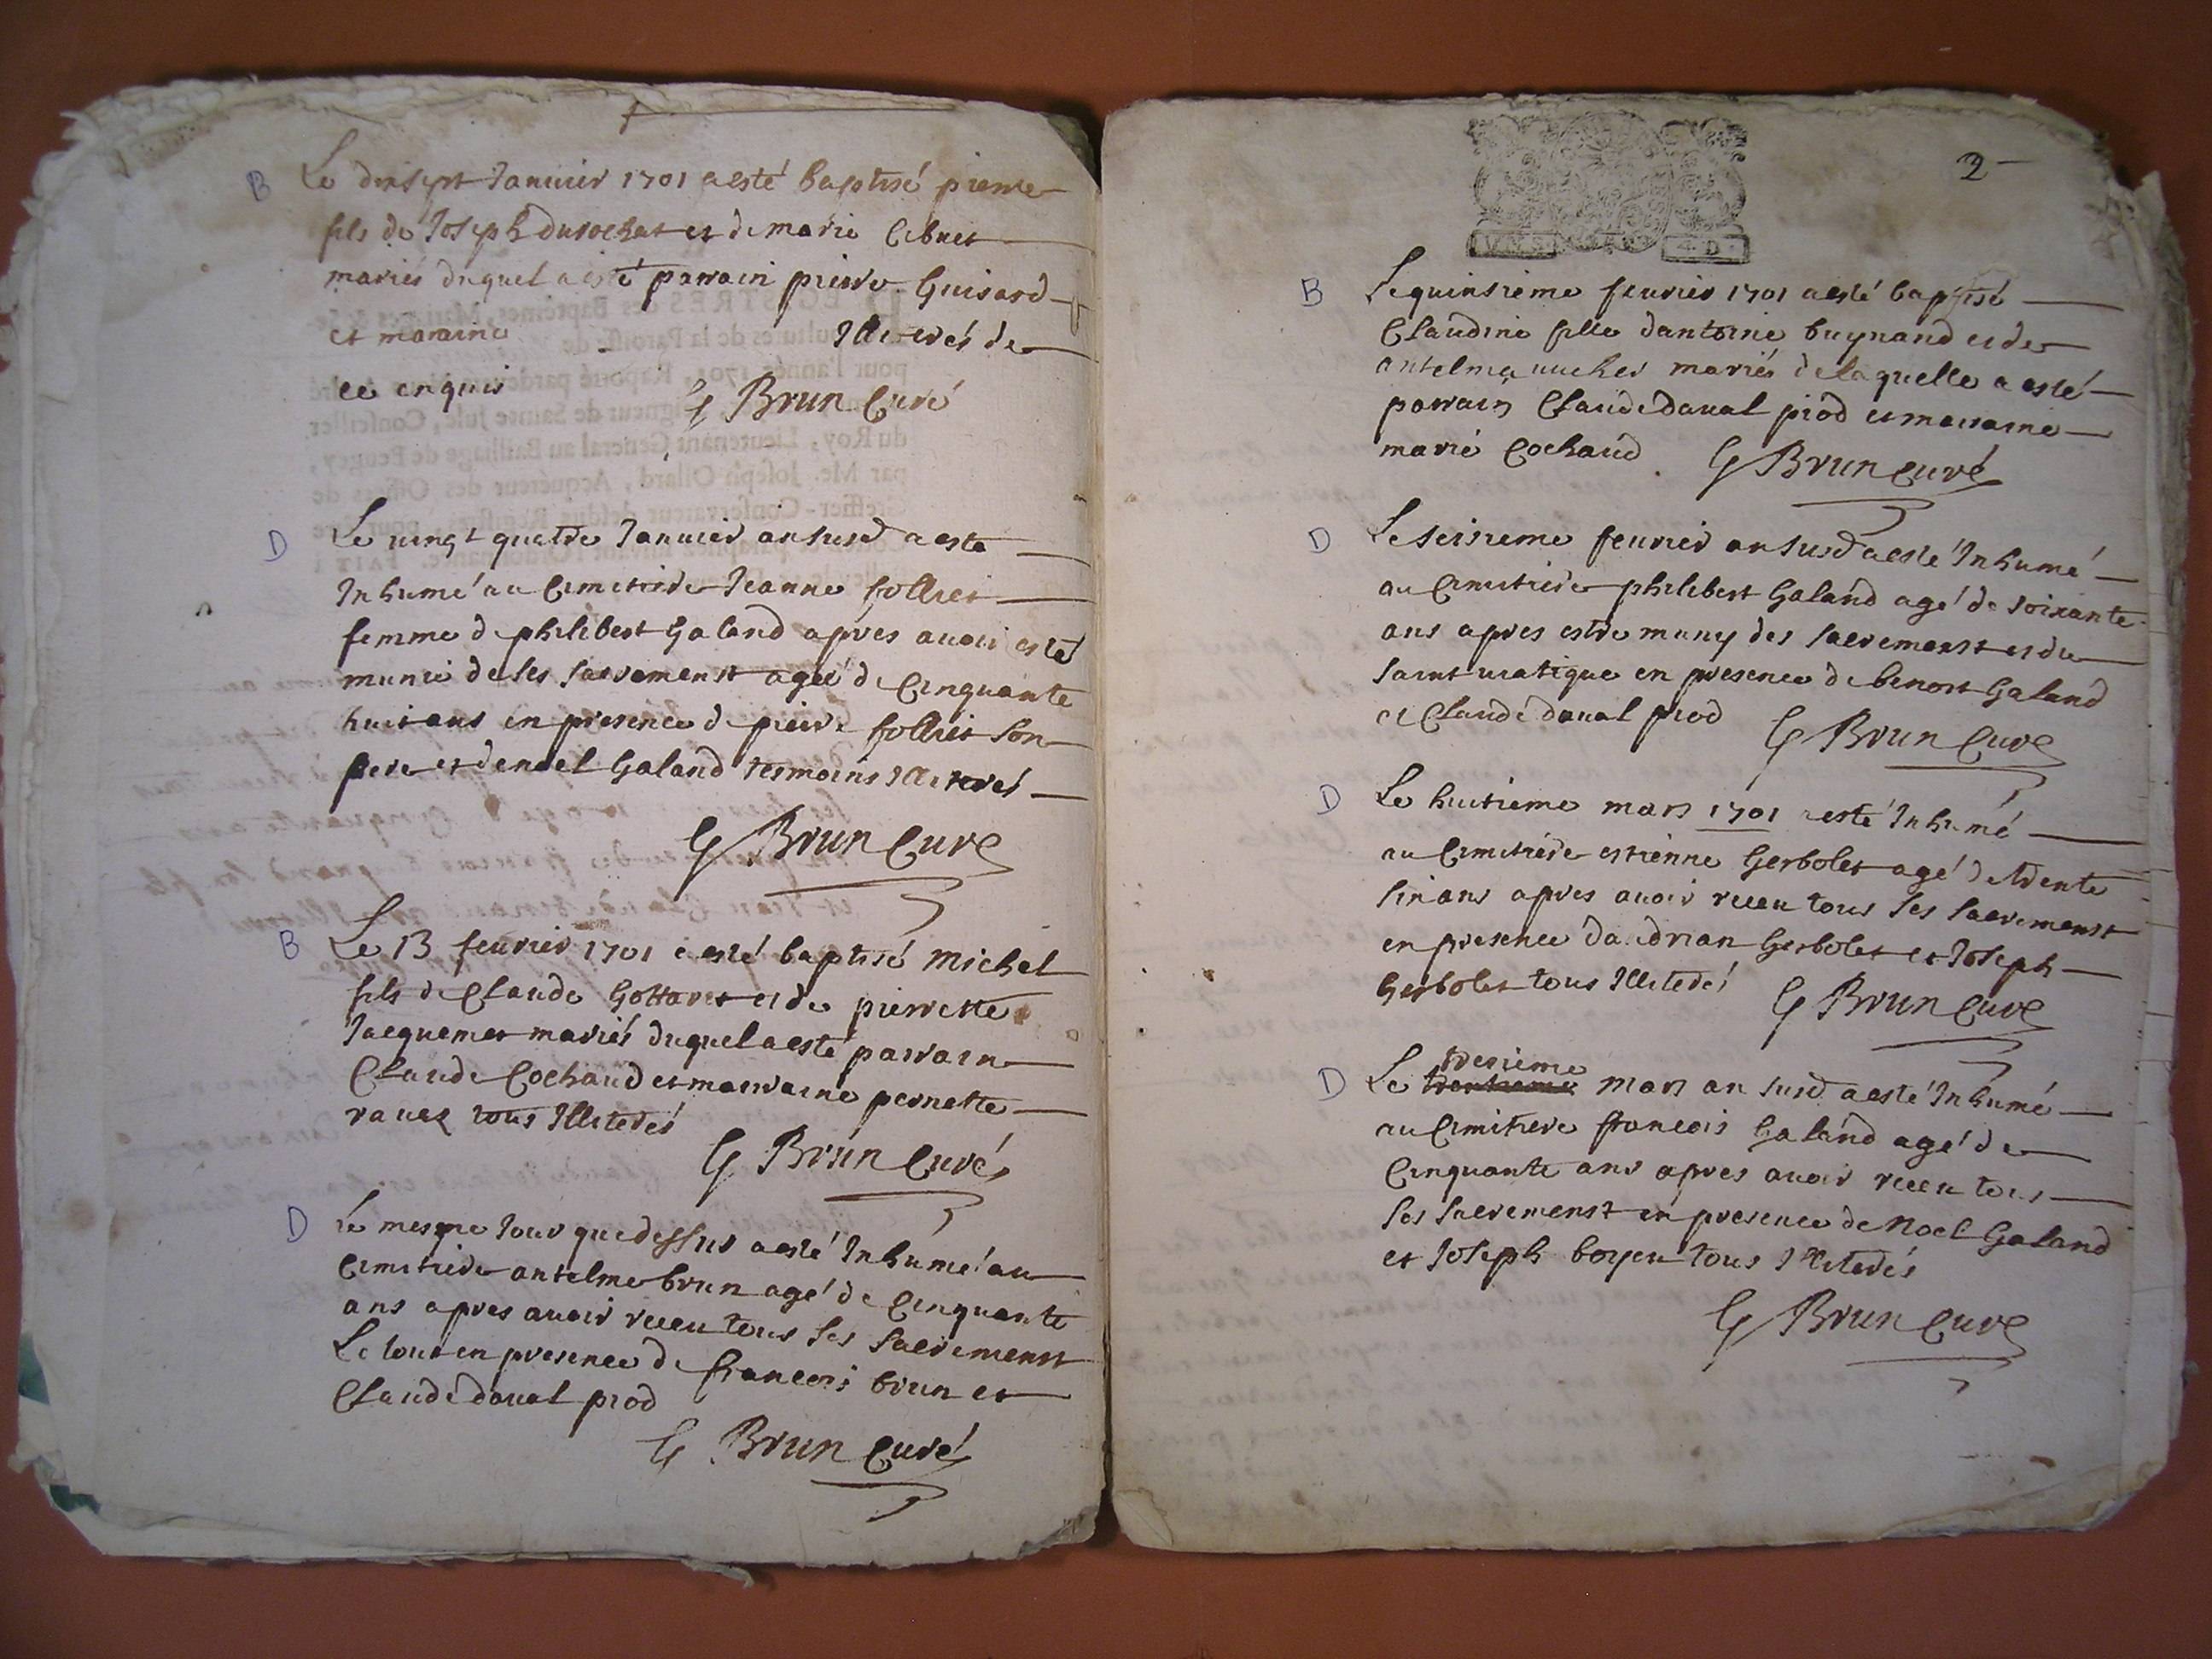 B Le dixsept Januier 1701 a esté baptisé pierre
fils de Joseph durochat et de marie Cibuet
mariés duquel a esté parrain pierre Guirard
et maraine Illiterés de
ce enquis G Brun Curé
D Le uingt quatre Januier an susd a esté
Inhumé au Cimetiere Jeanne follies
femme d philibert Galand apres auoir esté
munie de ses sacrements agée de Cinquante
huit ans en presence d pierre follies son
pere et denoel Galand tesmoins Illiterés
G Brun Curé
B Le 13 feurier 1701 a esté baptisé Michel
fils de Claude Gottaret et de pierrette
Jacquemet mariés duquel a esté parrain
Claude Cochaud et marraine pernette
rauex tous Illiterés
G Brun Curé
D Le mesme Jour que dessus a esté Inhumé au
Cimetiere antelme brun agé de Cinquante
ans apres auoir receu tous ses sacrements
Le tout en presence de francois brun et
Claude daual piod
G Brun Curé
2
B Le quinsieme feurier 1701 a esté baptisé
Claudine fille dantoine buynand et de
antelma uucher mariés de laquelle a esté
parrain Claude daual piod et maraine
marie Cochaud G Brun curé
D Le seisieme feurier an susd a esté Inhumé
au Cimetiere philibert Galand agé de soixante
ans apres estre muny des sacrements et du
saint uiatique en presence de benoit Galand
et Claude daual piod G Brun Curé
D Le huitieme mars 1701 a esté Inhumé
au Cimetiere estienne Gerbolet agé de trente
six ans apres auoir receu tous ses sacrements
en presence dandrian Gerbolet et Joseph
Gerbolet tous Illiterés G Brun Curé
tresieme
D Le mars an susd a esté Inhumé
au Cimitiere francois Galand agé de
Cinquante ans apres auoir receu tous
ses sacrements en presence de Noel Galand
et Joseph boyeu tous Illiterés
G Brun Curé